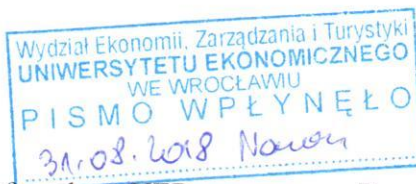 Wydział Ekonomii, Zarządzania i Turystyki
UNIWERSYTETU EKONOMICZNEGO
WE WROCŁAWIU
PISMO WPŁYNĘŁO
31.08.2018